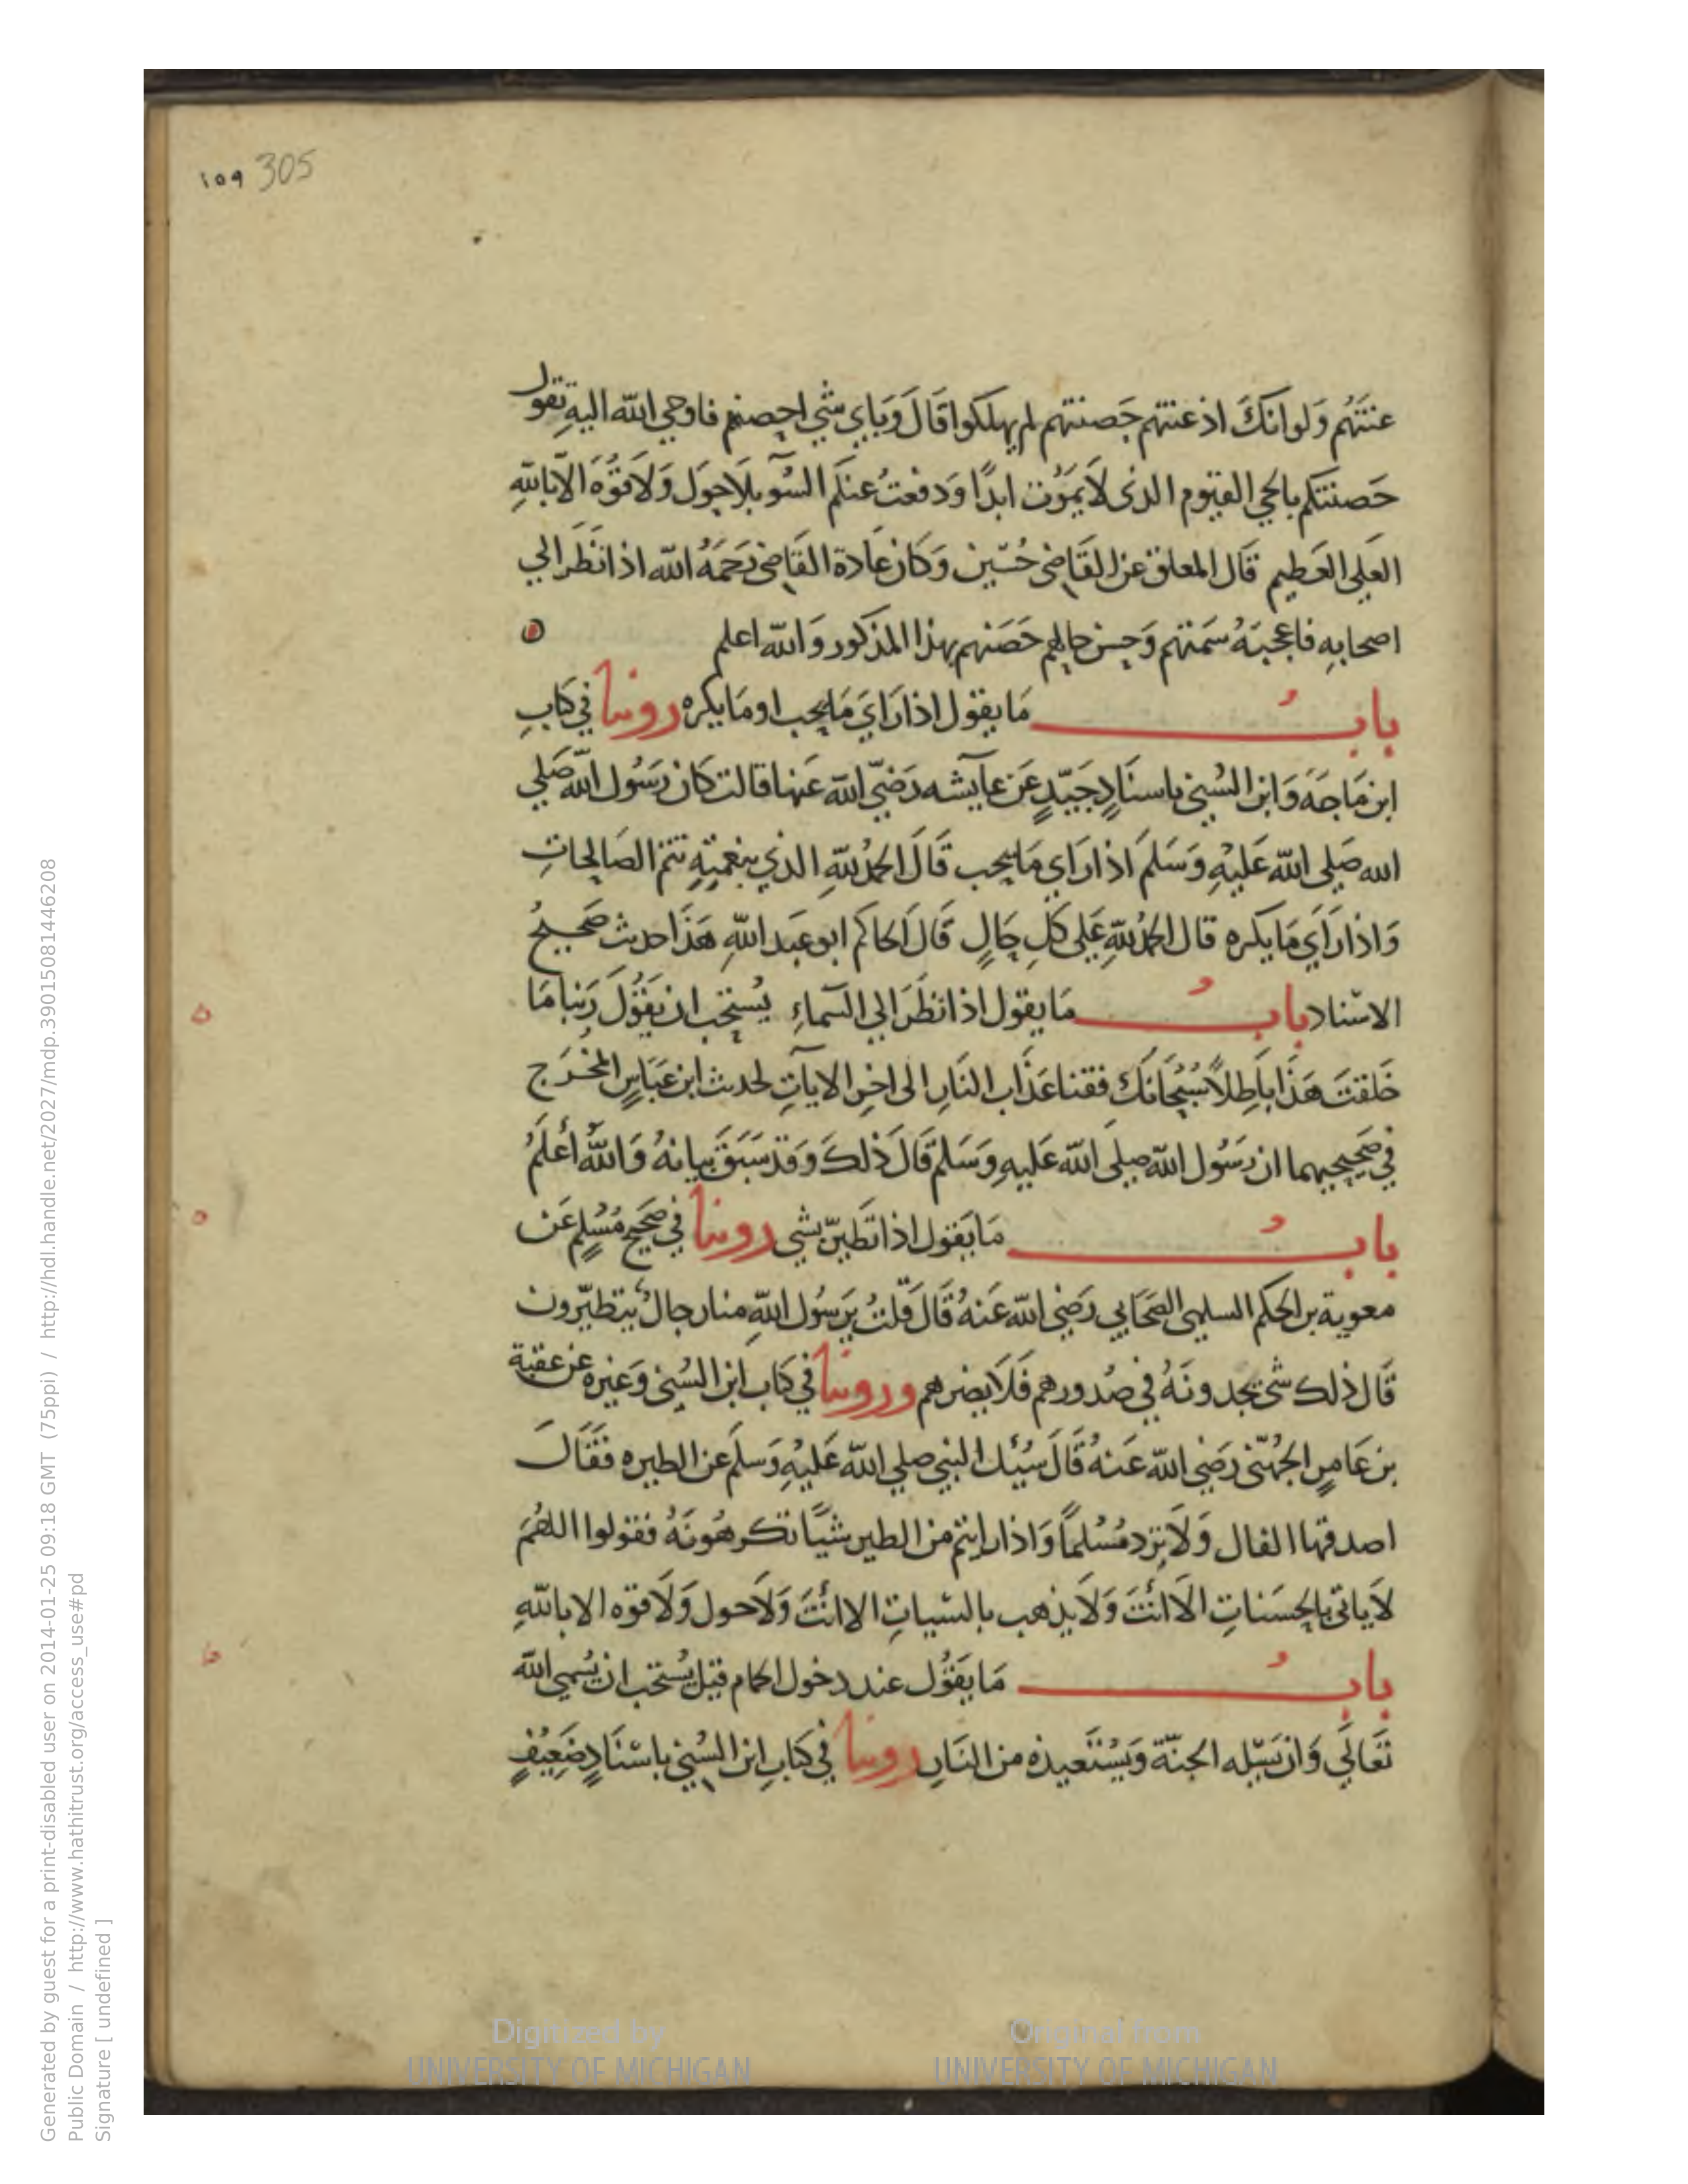 ١٥٩ 305
عنتهم ولو انك اذ عنتهم حصنتهم لم يهلكوا قال وباي شي احصنهم فاوحي الله اليه تقول
حصنتكم بالحي القيوم الذي لا يموت ابدا ودفعت عنكم السو بلا حول ولا قوه الا بالله
العلي العظيم قال المعلق عن القاضي حسين وكان عادة القاضي رحمه الله اذا نظر الي
اصحابه فاعجبه سمتهم وحسن حالهم حصنهم بهذا المذكور والله اعلم
باب ما يقول اذا راي ما يحب او ما يكره روينا في كتاب
ابن ماجه وابن السني باسناد جيد عن عايشه رضي الله عنها قالت كان رسول الله صلي
الله صلي الله عليه وسلم اذا راي ما يحب قال الحمد لله الذي بنعمته تتم الصالحات
واذا راي ما يكره قال الحمد لله علي كل حال قال الحاكم ابو عبد الله هذا حديث صحيح
الاسناد باب ما يقول اذا نظر الي السماء يستحب ان يقول ربنا ما
خلقت هذا باطلا سبحانك فقنا عذاب النار الى اخر الايات لحديث ابن عباس المخرج
في صحيحيهما ان رسول الله صلي الله عليه وسلم قال ذلك وقد سبق بيانه والله أعلم
باب ما يقول اذا تطير بشي روينا في صحيح مسلم عن
معوية بن الحكم السلمي الصحابي رضي الله عنه قال قلت يرسول الله منا رجال يتطيرون
قال ذلك شي يجدونه في صدورهم فلا يضرهم وروينا في كتاب ابن السني وغيره عن عقبة
بن عامر الجهني رضي الله عنه قال سئل النبي صلي الله عليه وسلم عن الطيره فقال
اصدقها الفال ولا ترد مسلما واذا رايتم من الطير شيا تكرهونه فقولوا اللهم
لا ياتي بالحسنات الا أنت ولا يذهب بالسيات الا انت ولا حول ولا قوه الا بالله
باب ما يقول عند دخول الحمام قيل يستحب ان يسمي الله
تعالي وان يسله الجنة ويستعيذه من النار روينا في كتاب ابن السني باسناد ضعيف
Generated by guest for a print-disabled user on 2014-01-25 09:18 GMT (75ppi) / http://hdl.handle.net/2027/mdp.39015081446208
Public Domain / http://www.hathitrust.org/access_use#pd
Signature [ undefined ]
Digitized by
UNIVERSITY OF MICHIGAN
Original from
UNIVERSITY OF MICHIGAN